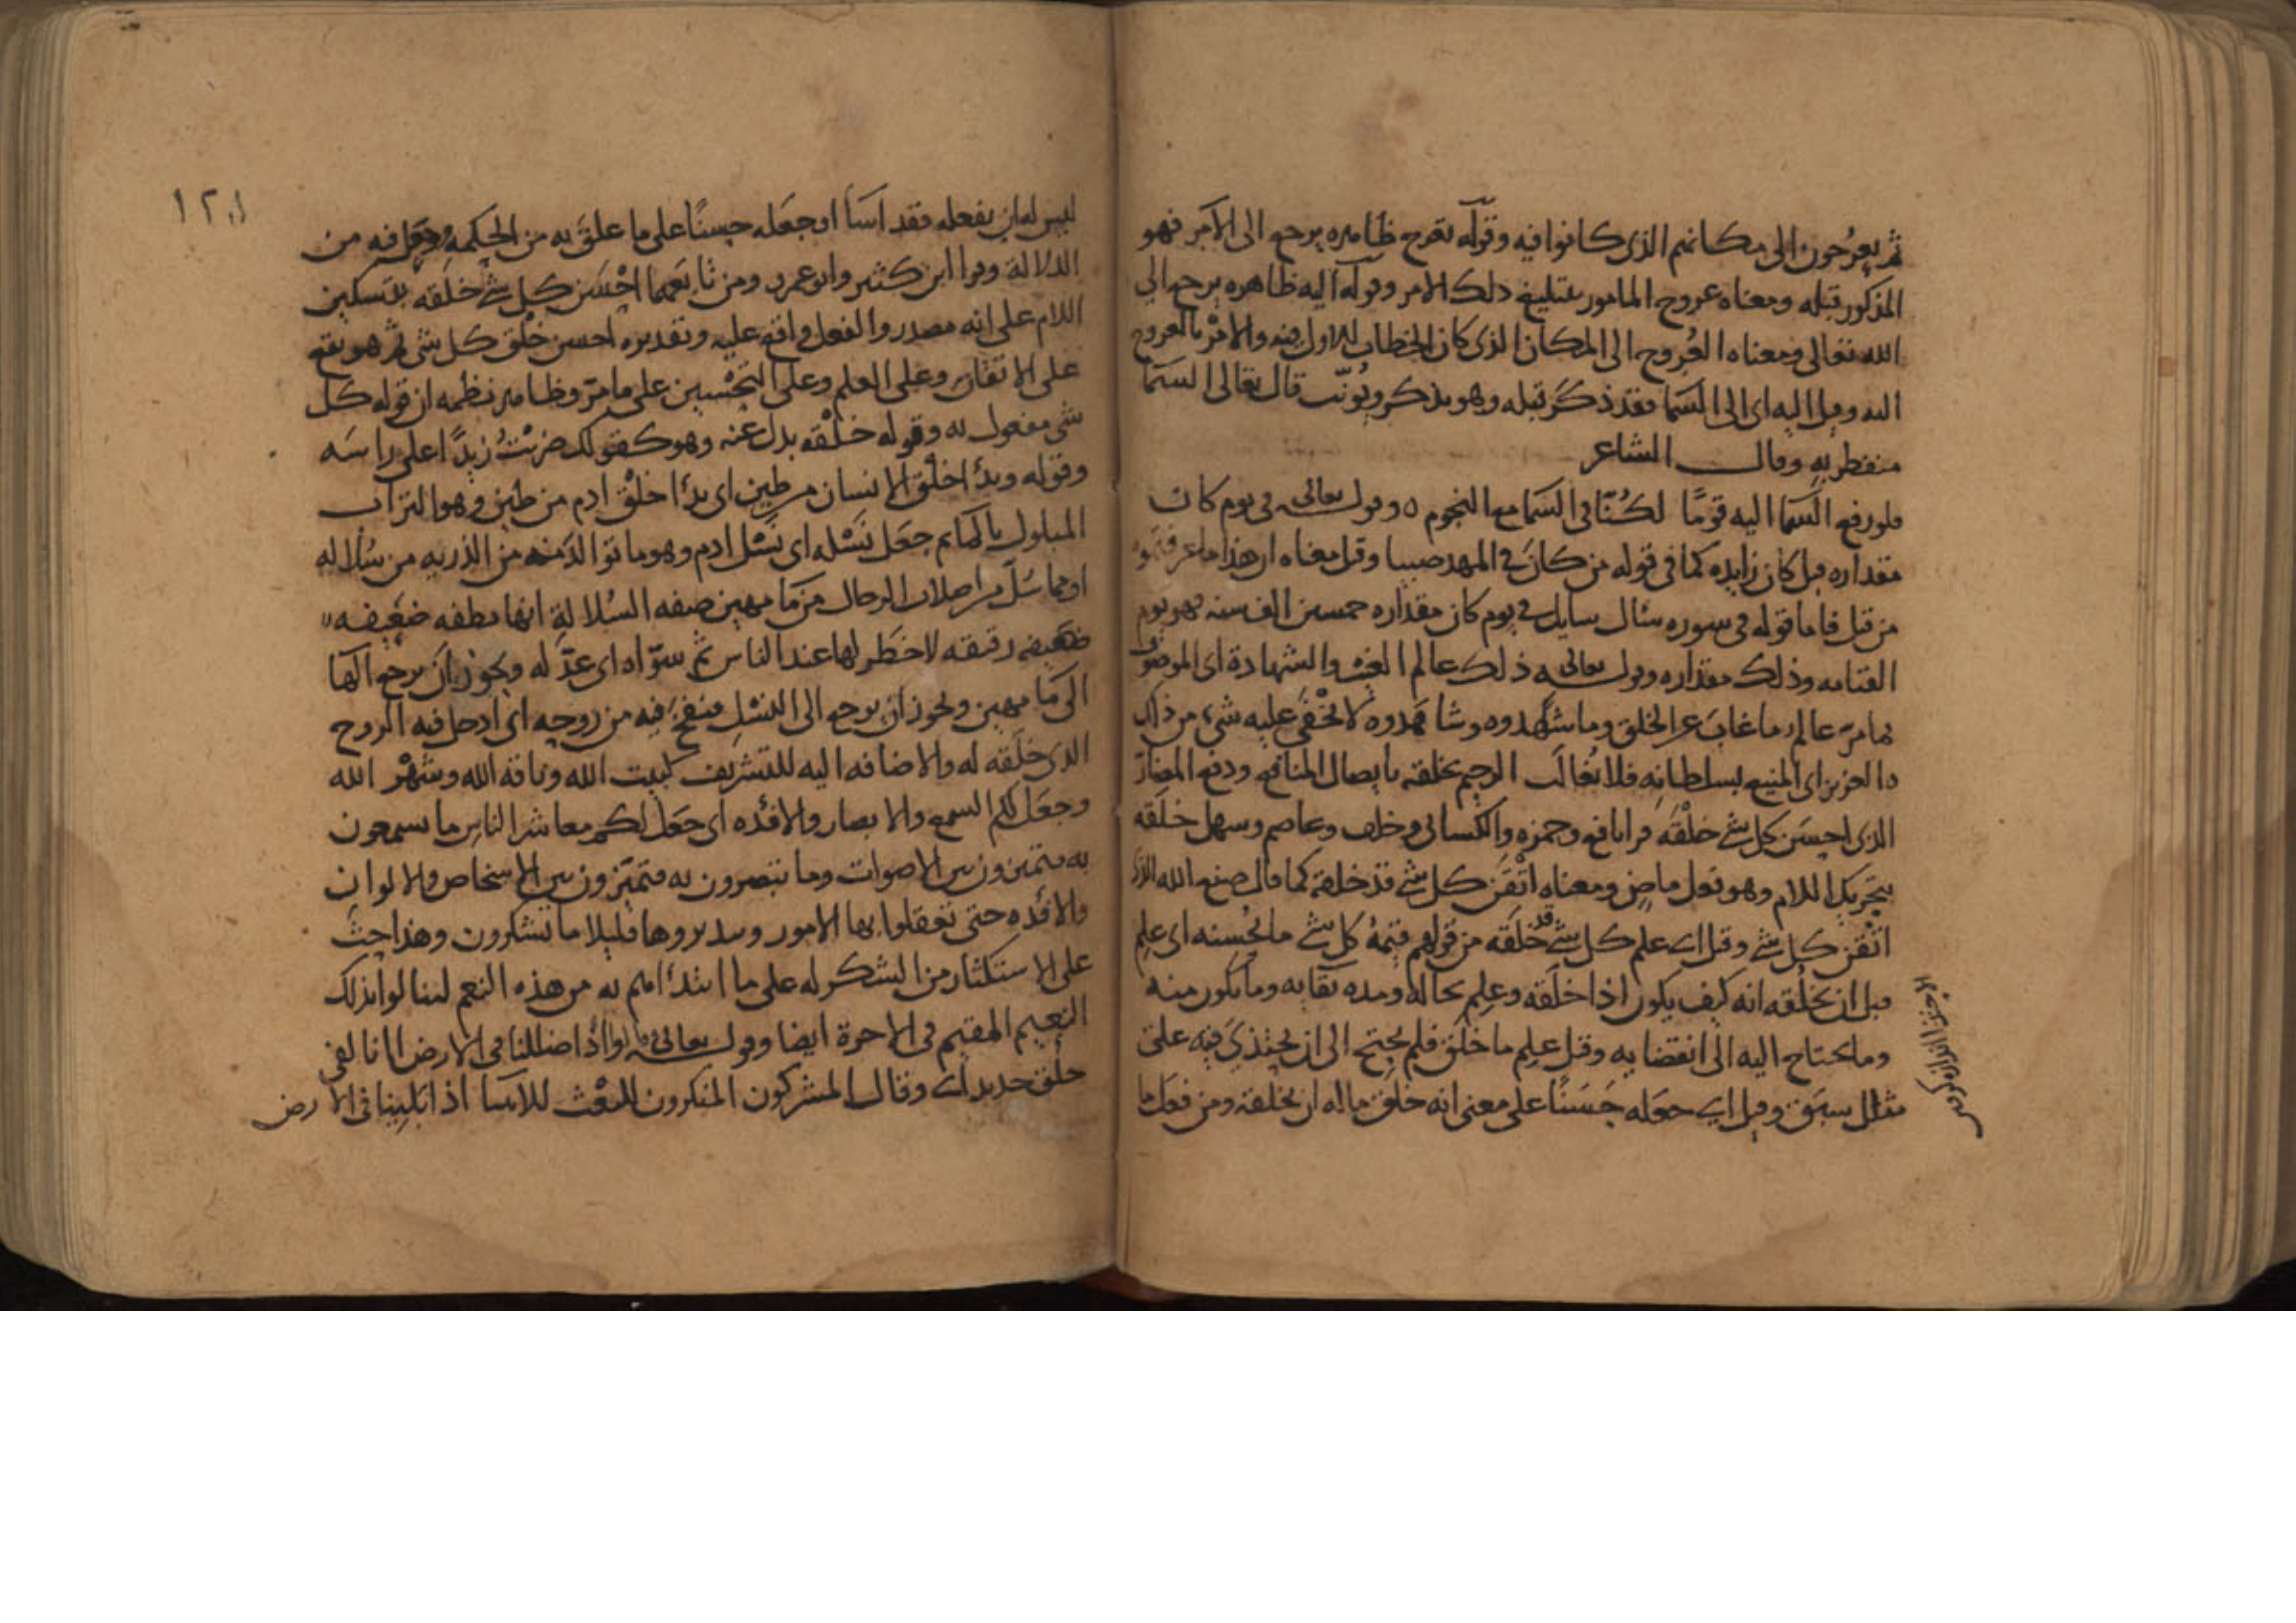 ثم يعرجون الى مكانهم الذى كانوا فيه وقوله يعرج ظاهره يرجع الى الامر فهو
المذكور قبله ومعناه عروج المامور بتبليغ ذلك الامر وقوله اليه ظاهره يرجع الى
الله تعالى ومعناه العروج الى المكان الذى كان الخطاب له اول منه والامر بالعروج
اليه وقيل اليه اى الى السما فقد ذكر قبله وهو يذكر ويونث قال تعالى السما
منفطر به وقال الشاعر
فلو رفع السما اليه قوما لكنا فى السما مع النجوم ٥ وقوله تعالى فى يوم كان
مقداره قيل كان زايده كما فى قوله من كان فى المهد صبيا وقيل معناه ان هذا ما عرفتموه
من قبل فاما قوله فى سوره سال سايل فى يوم كان مقداره خمسين الف سنه فهو يوم
القيامه وذلك مقداره وقوله تعالى ذلك عالم الغيب والشهادة اى الموصوف
بما مر عالم ما غاب عن الخلق وما شهدوه وشاهدوه لا يخفى عليه شىء من ذلك
العزيز اى المنيع بسلطانه فلا يغالب الرحيم بخلقه بايصال المنافع ودفع المضار
الذى احسن كل شى خلقه قرا نافع وحمزه والكسائى وخلف وعاصم وسهل خلقه
بتحريك اللام وهو فعل ماض ومعناه اتقن كل شى قد خلقه كما قال صنع الله الذى
اتقن كل شى وقيل اى علم كل شى قد خلقه من قولهم قيمة كل شى ما يحسنه اى علم
قبل ان يخلقه انه كيف يكون اذا خلقه وعلم بحاله ومده بقايه وما يكون منه
وما يحتاج اليه الى انقضايه وقيل علم ما خلق فلم يحتج الى ان يحتذى فيه على
مثال سبق وقيل اى جعله حسنا على معنى انه خلق ما له ان يخلقه ومن فعل ما
ليس له ان يفعله فقد اسا او جعله حسنا على ما علق به من الحكمه وجعل فيه من
الدلالة وقرا ابن كثير وابو عمرو ومن تابعهما احسن كل شى خلقه بتسكين
اللام على انه مصدر والفعل واقع عليه وتقديره احسن خلق كل شى ثم هو يقع
على الاتقان وعلى العلم وعلى التحسين على ما مر وظاهر نظمه ان قوله كل
شى مفعول به وقوله خلقه بدل عنه وهو كقولك ضربت زيدا اعلى راسه
وقوله وبدأ خلق الانسان من طين اى بدأ خلق ادم من طين وهو التراب
المبلول بالما ثم جعل نسله اى نسل ادم وهو ما توالد منه من الذريه من سلاله
اى مما سل من اصلاب الرجال من ما مهين صفه السلالة انها نطفه ضعيفه
ضعيفه رقيقه لا خطر لها عند الناس ثم سواه اى عدله ويجوز ان يرجع الها
الى ما مهين ويجوز ان يرجع الى النسل ونفخ فيه من روحه اى ادخل فيه الروح
الذى خلقه له والاضافه اليه للتشريف كبيت الله وناقة الله وشهر الله
وجعل لكم السمع والابصار والافئده اى جعل لكم معاشر الناس ما تسمعون
به فتميزون بين الاصوات وما تبصرون به فتميزون بين الاشخاص والالوان
والافئده حتى تعقلوا بها الامور وتدبروها قليلا ما تشكرون وهذا حث
على الاستكثار من الشكر له على ما ابتدأهم به من هذه النعم لينالوا بذلك
النعيم المقيم فى الاخرة ايضا وقوله تعالى وقالوا أئذا ضللنا فى الارض اانا لفى
خلق جديد اى وقال المشركون المنكرون للبعث للانبيا اذا ابلينا فى الارض